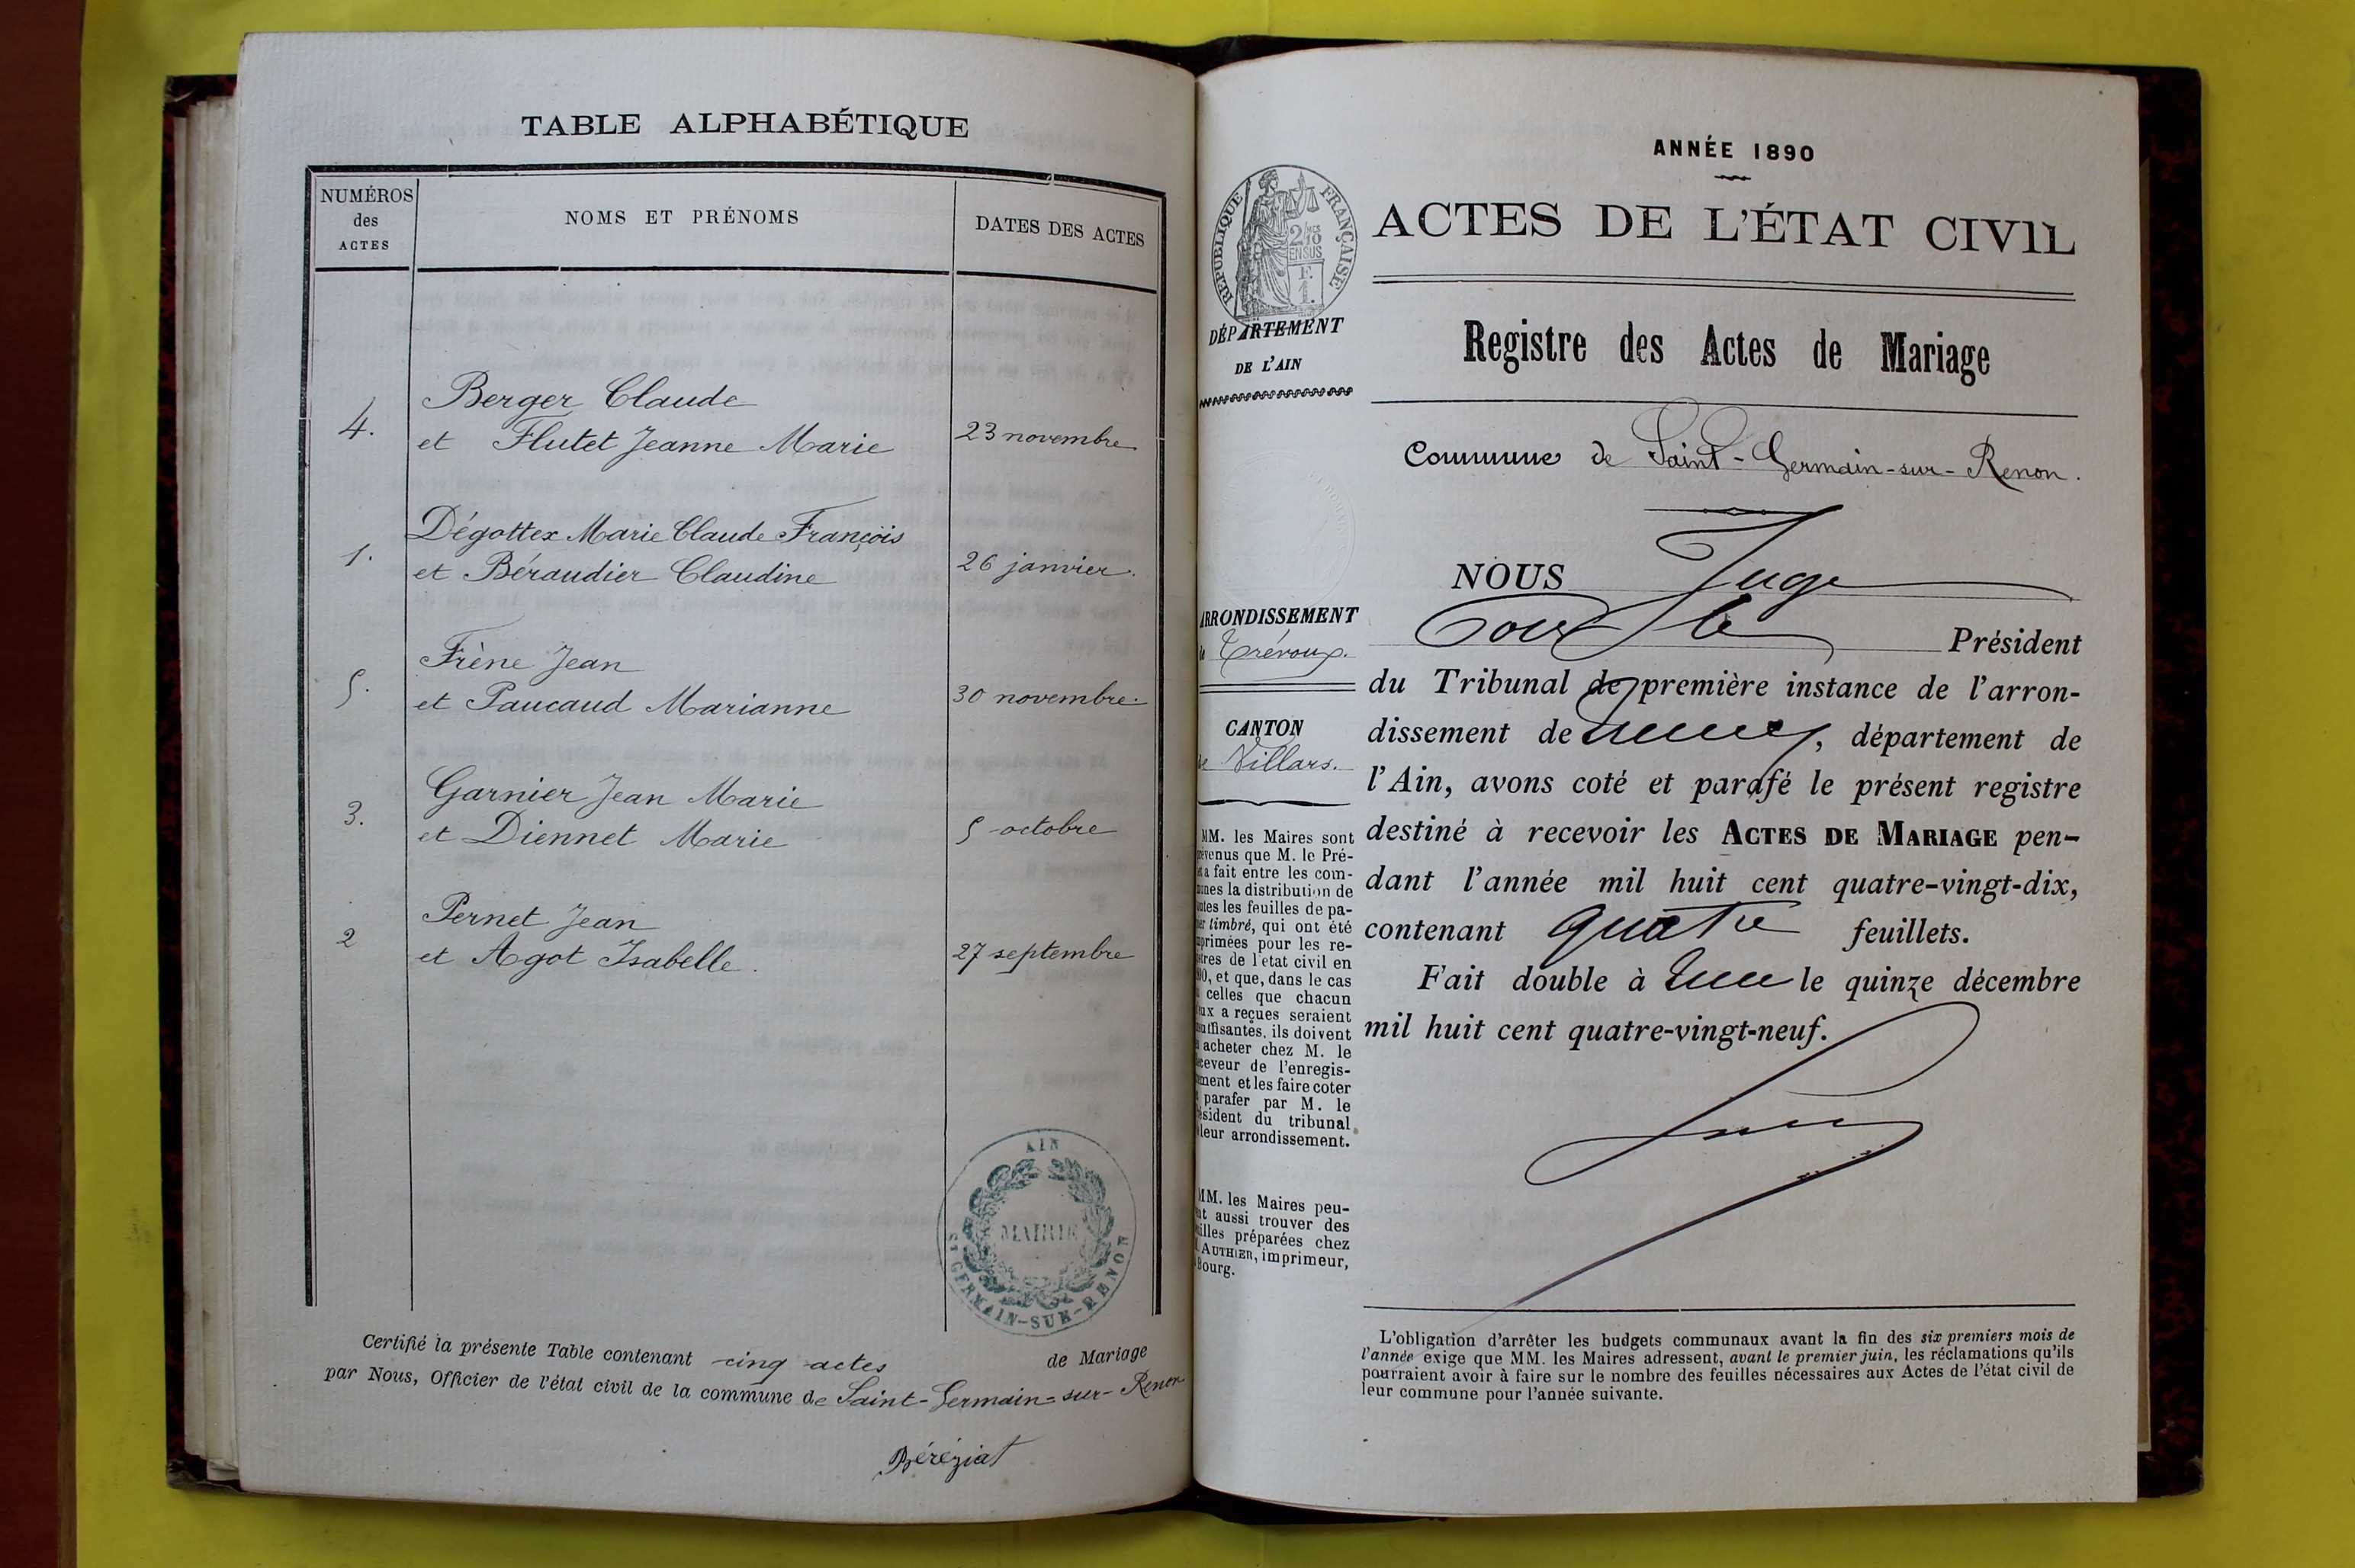 TABLE ALPHABÉTIQUE
NUMÉROS
des
ACTES
NOMS ET PRÉNOMS
DATES DES ACTES
4.
Berger Claude
et Flutet Jeanne Marie
23 novembre
1.
Dégottex Marie Claude François
et Béraudier Claudine
26 janvier.
5.
Frène Jean
et Paucaud Marianne
30 novembre.
3.
Garnier Jean Marie
et Diennet Marie
5 octobre
2
Pernet Jean
et Agot Isabelle.
27 septembre
AIN
MAIRIE
ST GERMAIN-SUR-RENON
Certifié la présente Table contenant cinq actes de Mariage
par Nous, Officier de l'état civil de la commune de Saint-Germain-sur-Renon
Béréziat
ANNÉE 1890
RÉPUBLIQUE FRANÇAISE
2/10
EN SUS
F.
1.
ACTES DE L'ÉTAT CIVIL
DÉPARTEMENT
DE L'AIN
Registre des Actes de Mariage
Commune de Saint-Germain-sur-Renon.
ARRONDISSEMENT
de Trévoux.
CANTON
de Villars.
NOUS Juge
Pour le Président
du Tribunal de première instance de l'arron-
dissement de , département de
l'Ain, avons coté et parafé le présent registre
destiné à recevoir les ACTES DE MARIAGE pen-
dant l'année mil huit cent quatre-vingt-dix,
contenant quatre feuillets.
Fait double à le quinze décembre
mil huit cent quatre-vingt-neuf.
MM. les Maires sont
prévenus que M. le Pré-
fet a fait entre les com-
munes la distribution de
toutes les feuilles de pa-
pier timbré, qui ont été
imprimées pour les re-
gistres de l'état civil en
1890, et que, dans le cas
où celles que chacun
d'eux a reçues seraient
insuffisantes, ils doivent
en acheter chez M. le
Receveur de l'enregis-
trement et les faire coter
et parafer par M. le
Président du tribunal
de leur arrondissement.
MM. les Maires peu-
vent aussi trouver des
feuilles préparées chez
M. AUTHIER, imprimeur,
à Bourg.
L'obligation d'arrêter les budgets communaux avant la fin des six premiers mois de
l'année exige que MM. les Maires adressent, avant le premier juin, les réclamations qu'ils
pourraient avoir à faire sur le nombre des feuilles nécessaires aux Actes de l'état civil de
leur commune pour l'année suivante.